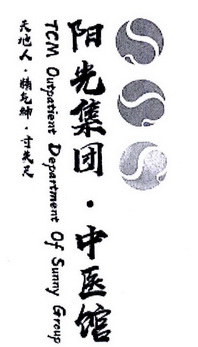 阳光集团·中医馆
TCM Outpatient Department Of Sunny Group
天地人·精气神·寸关尺